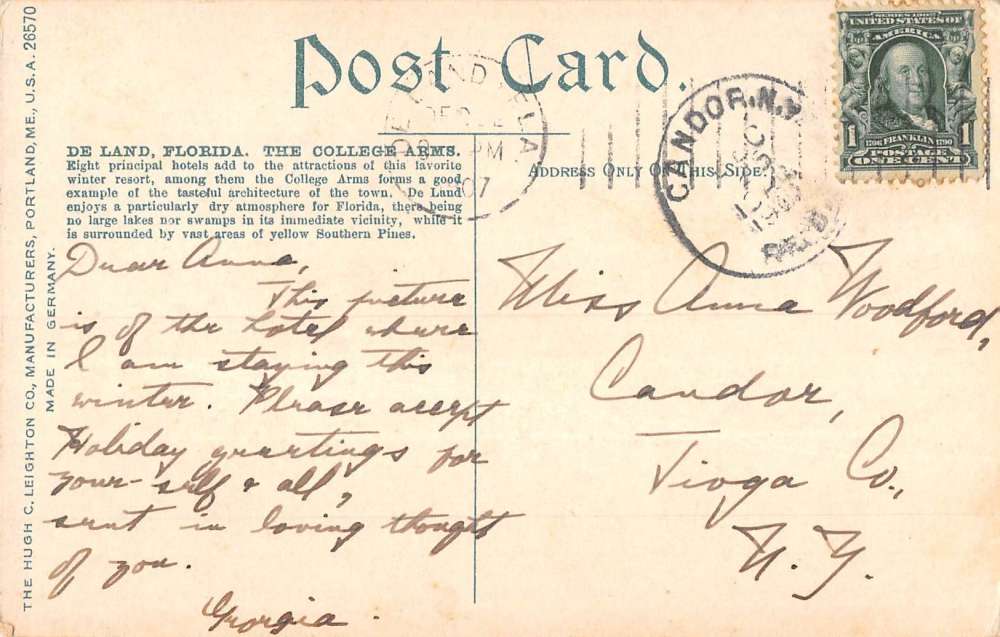 Post Card.
DE LAND, FLORIDA. THE COLLEGE ARMS.
Eight principal hotels add to the attractions of this favorite
winter resort, among them the College Arms forms a good
example of the tasteful architecture of the town. De Land
enjoys a particularly dry atmosphere for Florida, there being
no large lakes nor swamps in its immediate vicinity, while it
is surrounded by vast areas of yellow Southern Pines.
ADDRESS ONLY ON THIS SIDE.
THE HUGH C. LEIGHTON CO., MANUFACTURERS, PORTLAND, ME., U.S.A. 26570
MADE IN GERMANY.
DE LAND FLA.
DEC
PM
07
CANDOR, N.Y.
SERIES 1902
UNITED STATES OF
AMERICA
1706 FRANKLIN 1790
1 POSTAGE 1
ONE CENT
Dear Anna,
This picture
is of the hotel where
I am staying this
winter. Please accept
Holiday greetings for
your-self & all,
sent in loving thought
of you.
Georgia.
Miss Anna Woodford,
Candor,
Tioga Co.,
N. Y.